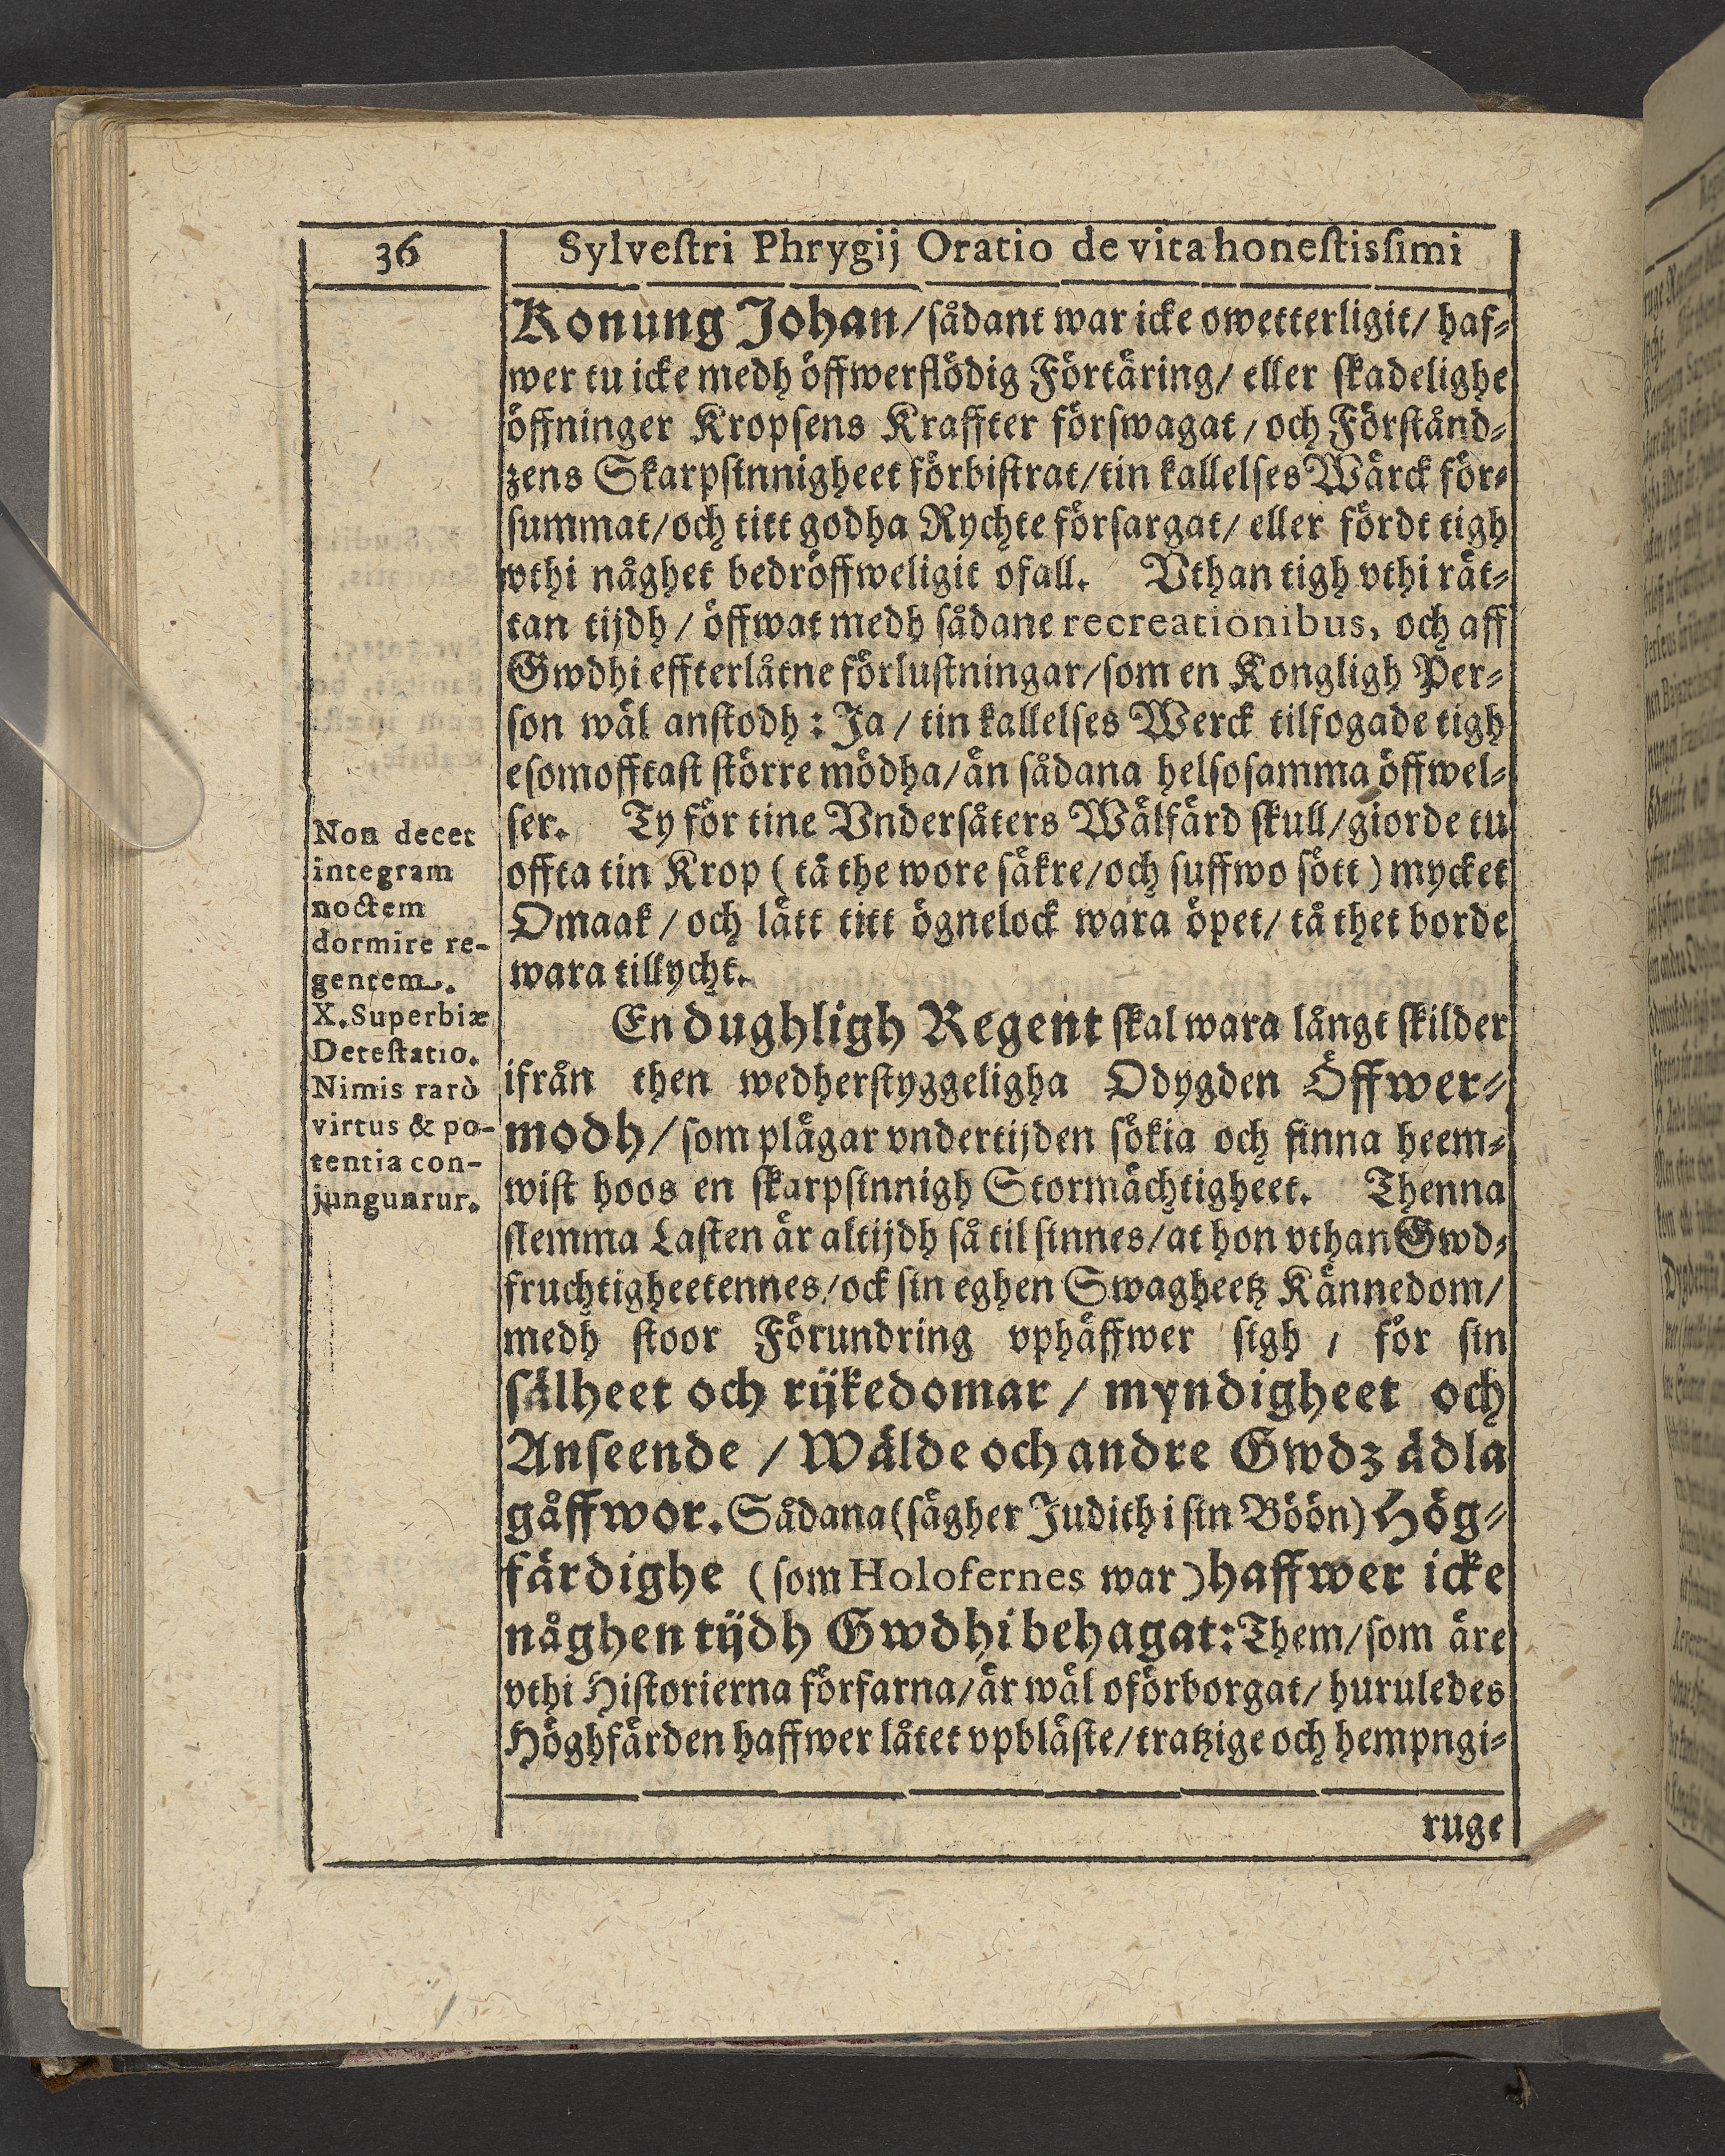 36
Sylvestri Phrygij Oratio de vita honestissimi
Konung Johan/sådant war icke owetterligit/ haf-
wer tu icke medh öffwerflödig Förtäring/ eller skadelighe
öffninger Kropsens Kraffter förswagat/ och Förstånd-
zens Skarpsinnigheet förbistrat/tin kallelses Wärck för-
summat/och titt godha Rychte försargat/ eller fördt tigh
vthi någhet bedröffweligit ofall. Vthan tigh vthi rät-
tan tijdh/ öffwat medh sådane recreationibus, och aff
Gwdhi effterlåtne förlustningar/som en Kongligh Per-
son wäl anstodh: Ja/ tin kallelses Werck tilfogade tigh
esomofftast större mödha/än sådana helsosamma öffwel-
ser. Ty för tine Vndersåters Wälfärd skull/giorde tu
offta tin Krop (tå the wore säkre/och suffwo sött) mycket
Omaak/ och lätt titt ögnelock wara öpet/ tå thet borde
wara tillycht.
Non decet
integram
noctem
dormire re-
gentem.
X. Superbiæ
Detestatio.
Nimis rarò
virtus & po-
tentia con-
junguntur.
En dughligh Regent skal wara långt skilder
ifrån then wedherstyggeligha Odygden Öffwer-
modh/som plägar vndertijden sökia och finna heem-
wist hoos en skarpsinnigh Stormächtigheet. Thenna
slemma Lasten är altijdh så til sinnes/at hon vthan Gwd-
fruchtigheetennes/ock sin eghen Swagheetz Kännedom/
medh stoor Förundring vphäffwer sigh/ för sin
sälheet och rijkedomar/ myndigheet och
Anseende/ Wälde och andre Gwdz ädla
gåffwor. Sådana (sägher Judith i sin Böön) Hög-
färdighe (som Holofernes war) haffwer icke
någhen tijdh Gwdhi behagat: Them/som äre
vthi Historierna förfarna/är wäl oförborgat/ huruledes
Höghfärden haffwer låtet vpbläste/tratzige och hempngi-
ruge